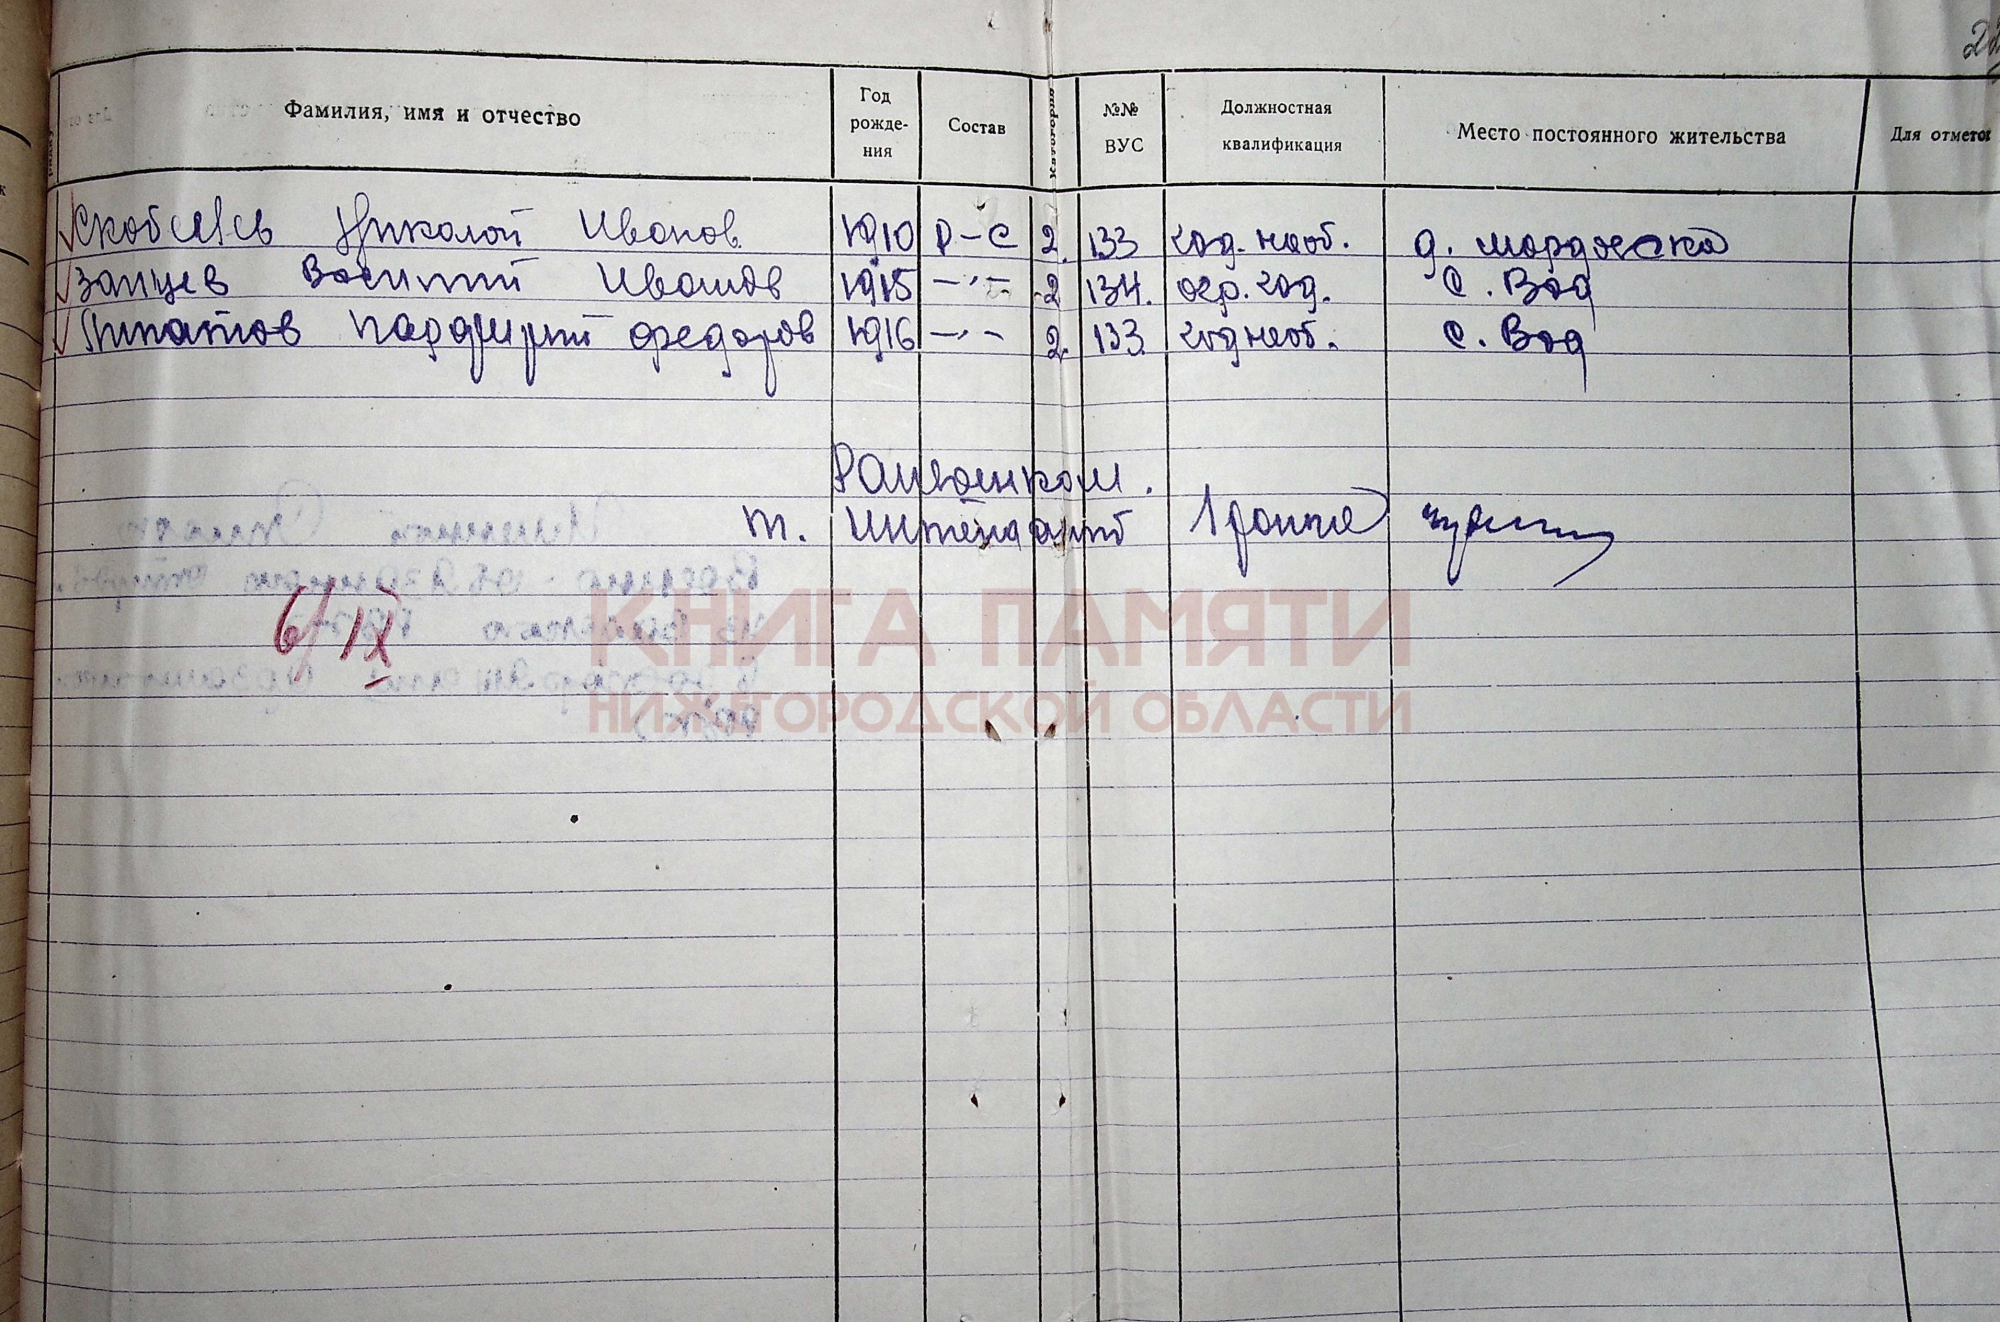 Фамилия, имя и отчество Год рожде- ния Состав Категория №№ ВУС Должностная квалификация Место постоянного жительства Для отметок
Скобелев Николай Иванов 1910 Р-С 2. 133 год. необ. д.
Зайцев Василий Иванов 1915 —"— 2 134. огр. год. С. Вад
Ипатов Парфирий Федоров 1916 —"— 2. 133 год необ. С. Вад
Райвоенком.
т. интендант 1 ранга
6/IX
КНИГА ПАМЯТИ
НИЖЕГОРОДСКОЙ ОБЛАСТИ